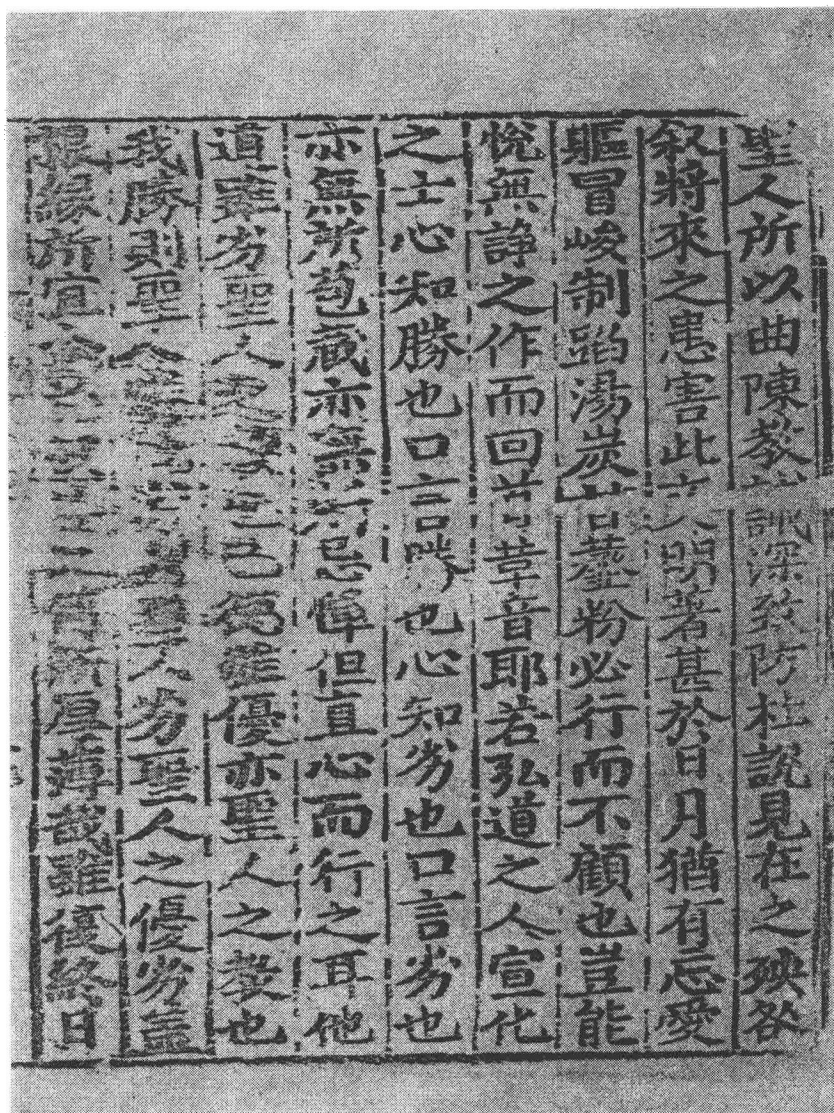 聖人所以曲陳教誡深致防杜說見在之殃咎
叙將來之患害此文明著甚於日月猶有忘愛
軀冒峻制蹈湯炭甘虀粉必行而不顧也豈能
悅無諍之作而回首革音耶若弘道之人宣化
之士心知勝也口言勝也心知劣也口言劣也
亦無所苞藏亦無所忌憚但直心而行之耳他
道雖劣聖人之教也己德雖優亦聖人之教也
我勝則聖人劣聖人之優劣蓋
根緣所宜厚薄哉雖復終日